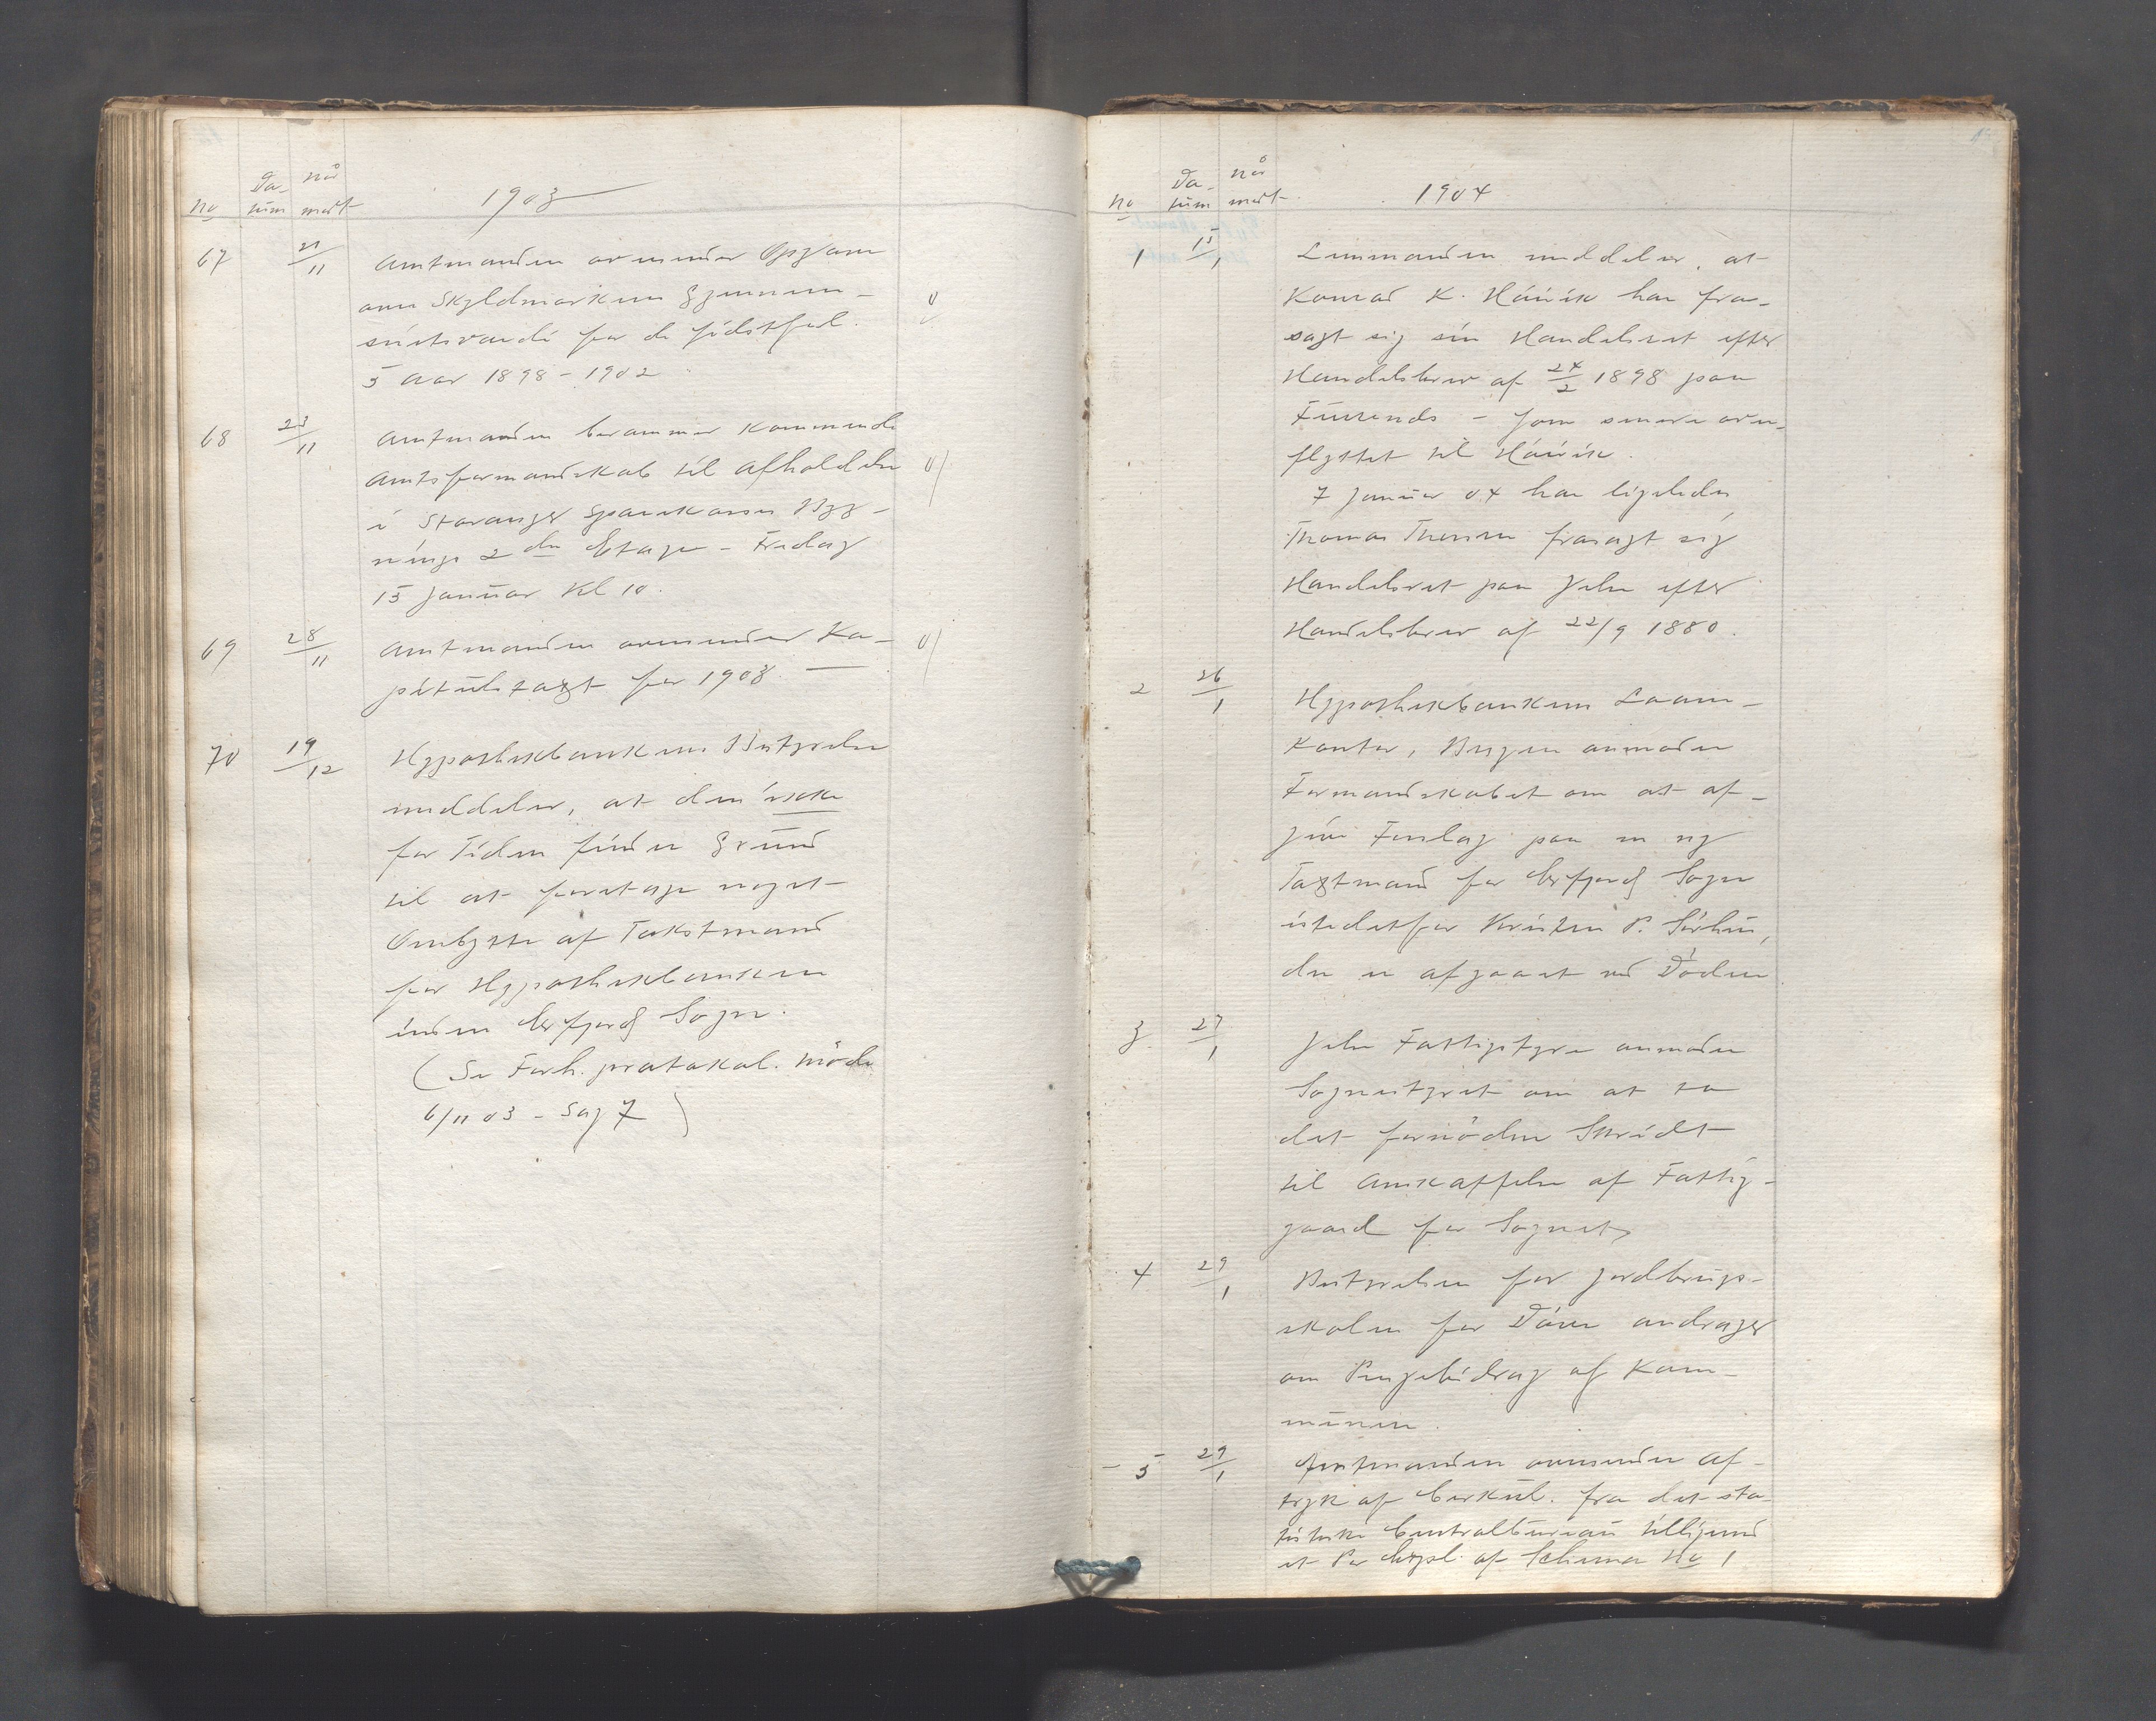 No Da- når
tum mott 1903
67 21/11 Amtmanden oversender Opgave
over Skyldmarkens Gjennem-
snitsværdi for de sidstforl.
5 Aar 1898-1902
68 23/11 Amtmanden berammer kommende
Amtsformandskab til Afholdelse
i Stavanger Sparekasses Byg-
nings 2den Etage - Fredag
15 Januar Kl 10.
69 28/11 Amtmanden oversender Ka-
pitulstaxt for 1903.
70 19/12 Hypothekbankens Bestyrelse
meddeler, at den ikke
for Tiden finder Grund
til at foretage noget
Ombytte af Takstmand
for Hypothekbanken
inden Erfjord Sogn.
(Se Forh. protokol. Møde
6/11 03 - Sag 7)
No Da- når
tum mott 1904
1 15/1 Lensmanden meddeler, at
Konrad K. Håvik har fra-
sagt sig sin Handelsret efter
Handelsbrev af 24/2 1898 paa
- som senere over-
flyttet til Håvik.
7 Januar 04 har ligeledes
Thomas Thorsen frasagt sig
Handelsret paa Jelse efter
Handelsbrev af 22/9 1880.
2 26/1 Hypothekbankens Laane-
kontor, Bergen anmoder
Formandskabet om at af-
give Forslag paa en ny
Taxtmand for Erfjord Sogn
istedetfor Kristen P.
der er afgaaet ved Døden
3 27/1 Jelse Fattigstyre anmoder
Sognestyret om at ta
det fornødne Skridt
til Anskaffelse af Fattig-
gaard for Sognet,
4 29/1 Bestyrelsen for Jordbrugs-
skolen for Døve andrager
om Pengebidrag af Kom-
munen.
- 5 29/1 Amtmanden oversender Af-
tryk af Cirkul. fra det sta-
tistiske Centralbureau tilligemed
et Par Expl. af Schema No 1